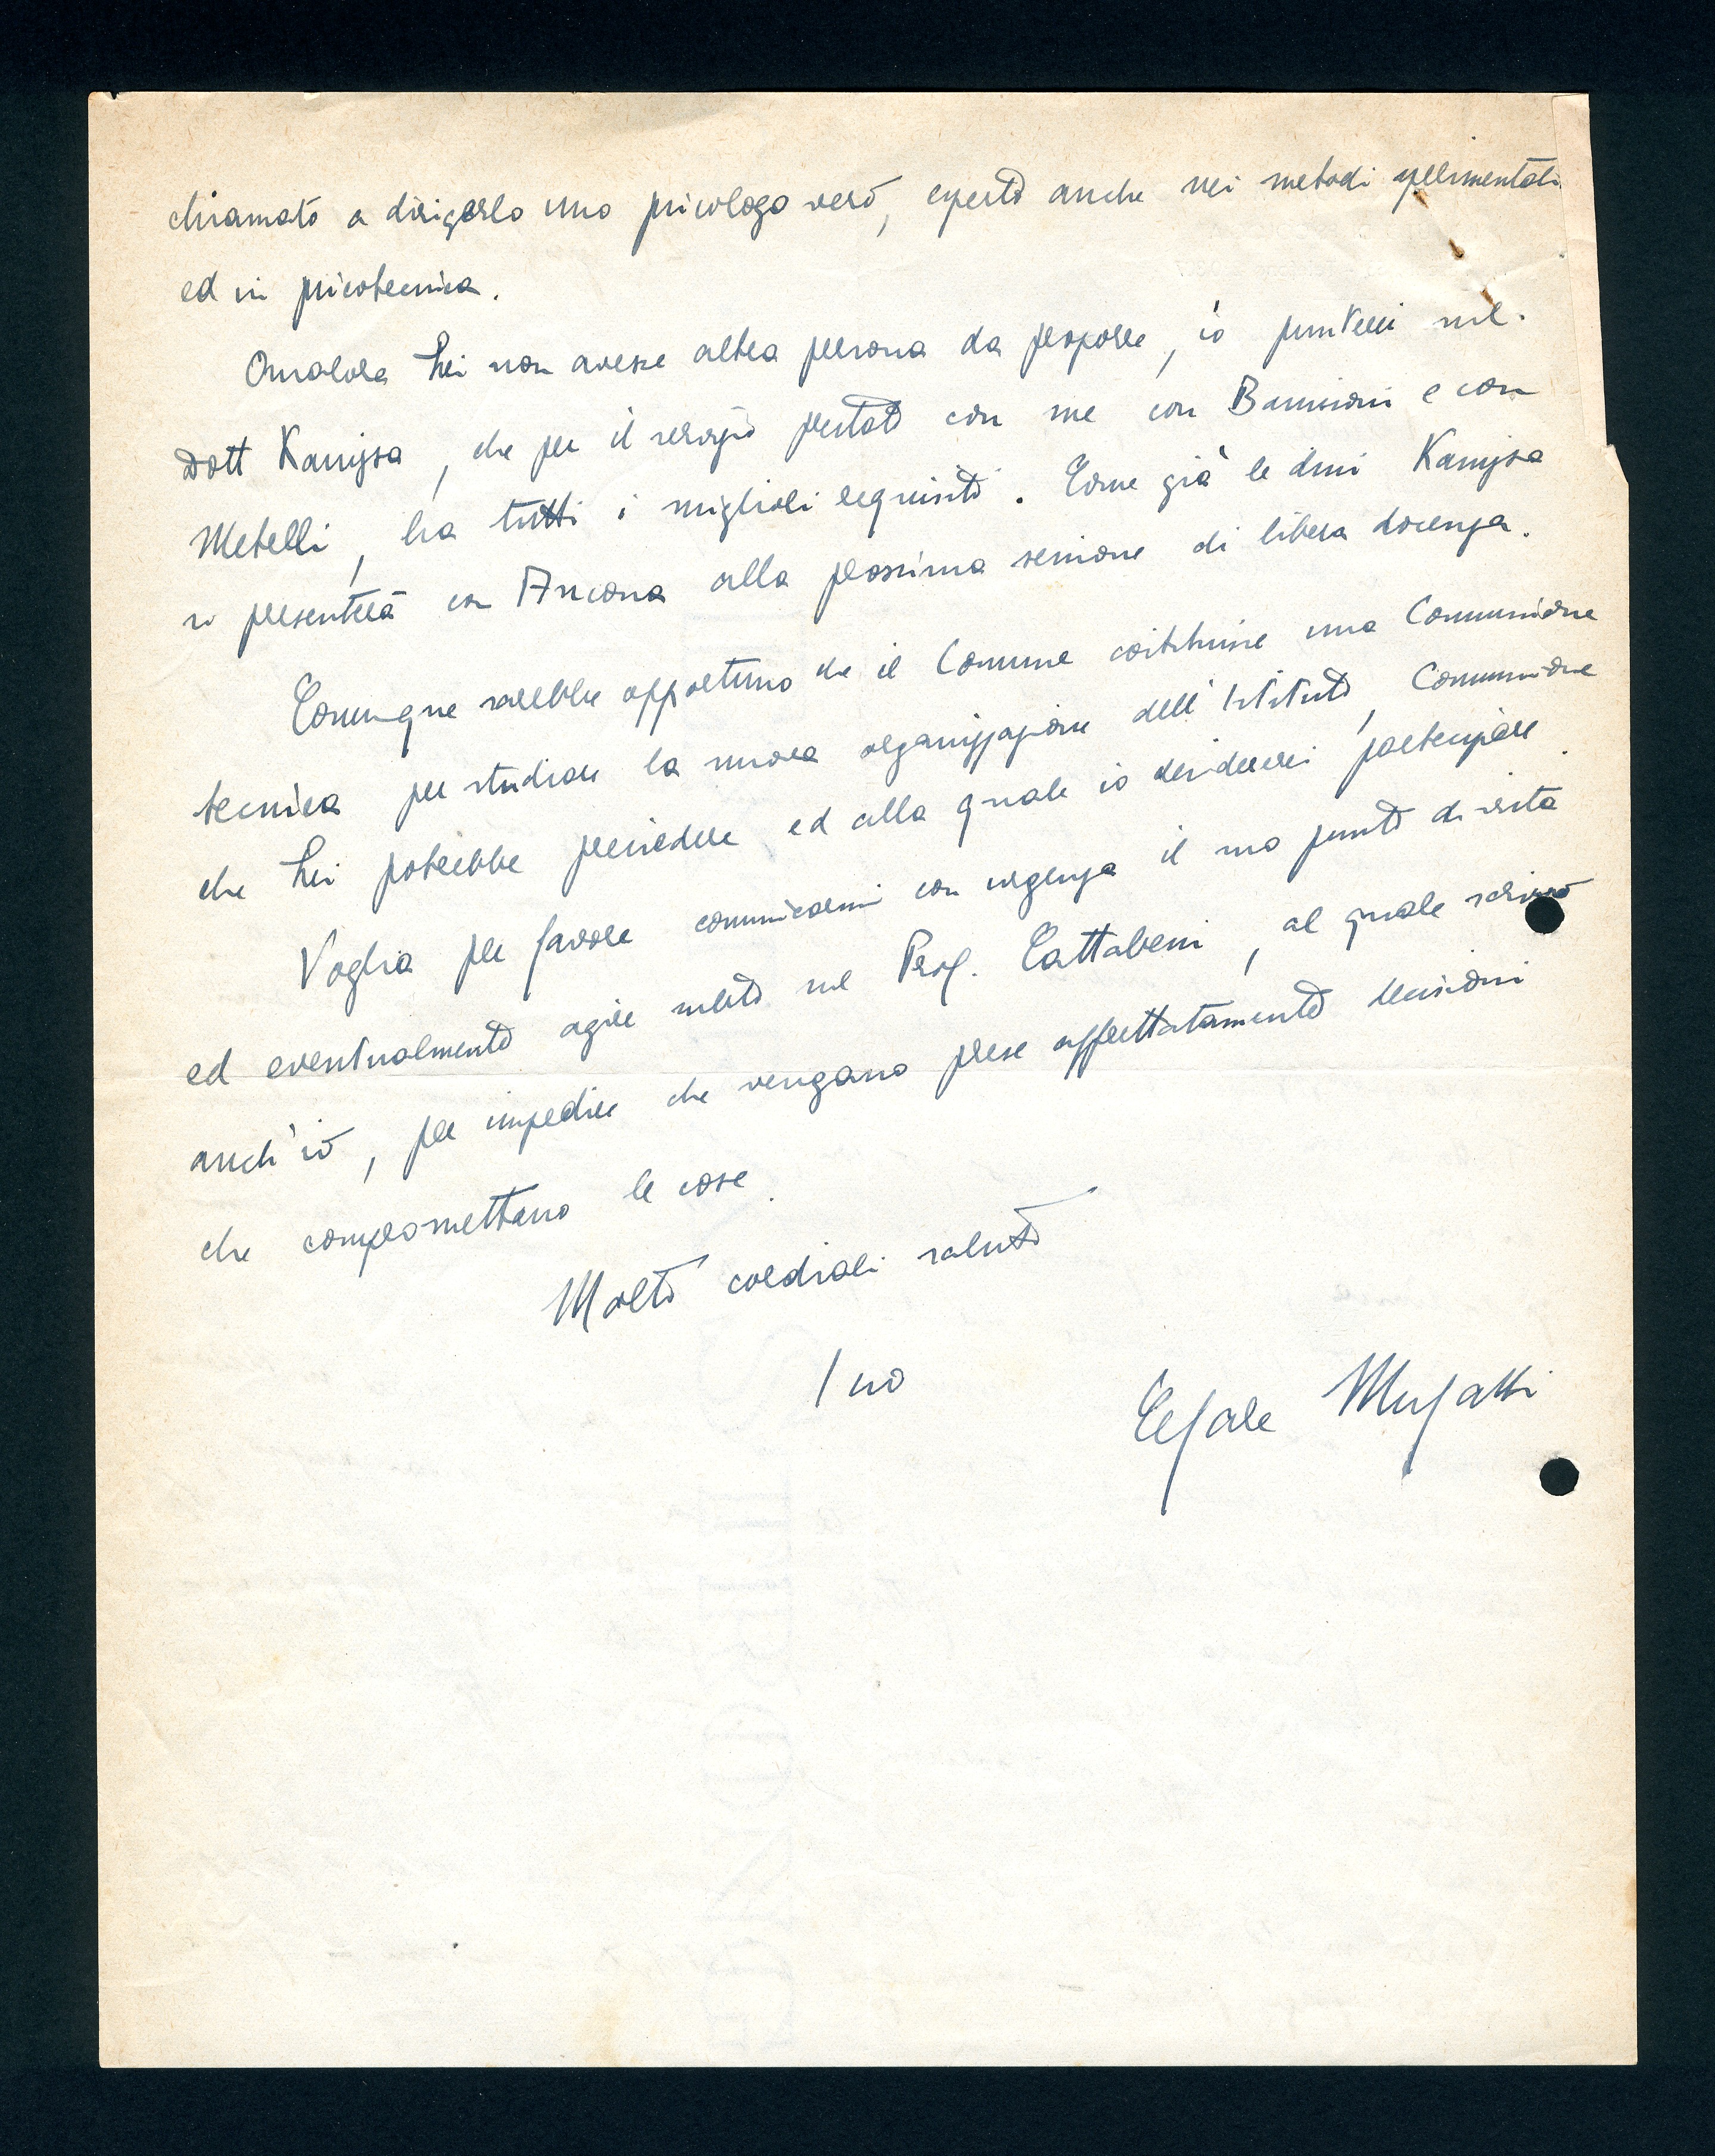 chiamato a dirigerlo uno psicologo vero, esperto anche nei metodi sperimentali
ed in psicotecnica.
Qualora Lei non avesse altra persona da proporre, io punterei sul
Dott Kanizsa, che per il servizio prestato con me con Banissoni e con
Metelli, ha tutti i migliori requisiti. Come già le dissi Kanizsa
si presenterà con Ancona alla prossima sessione di libera docenza.
Comunque sarebbe opportuno che il Comune costituisse una Commissione
tecnica per studiare la nuova organizzazione dell'Istituto, Commissione
che Lei potrebbe presiedere ed alla quale io desidererei partecipare.
Voglia per favore comunicarmi con urgenza il suo punto di vista
ed eventualmente agire subito sul Prof. Cattabeni, al quale scrivo
anch'io, per impedire che vengano prese affrettatamente decisioni
che compromettano le cose.
Molti cordiali saluti
Suo
Cesare Musatti